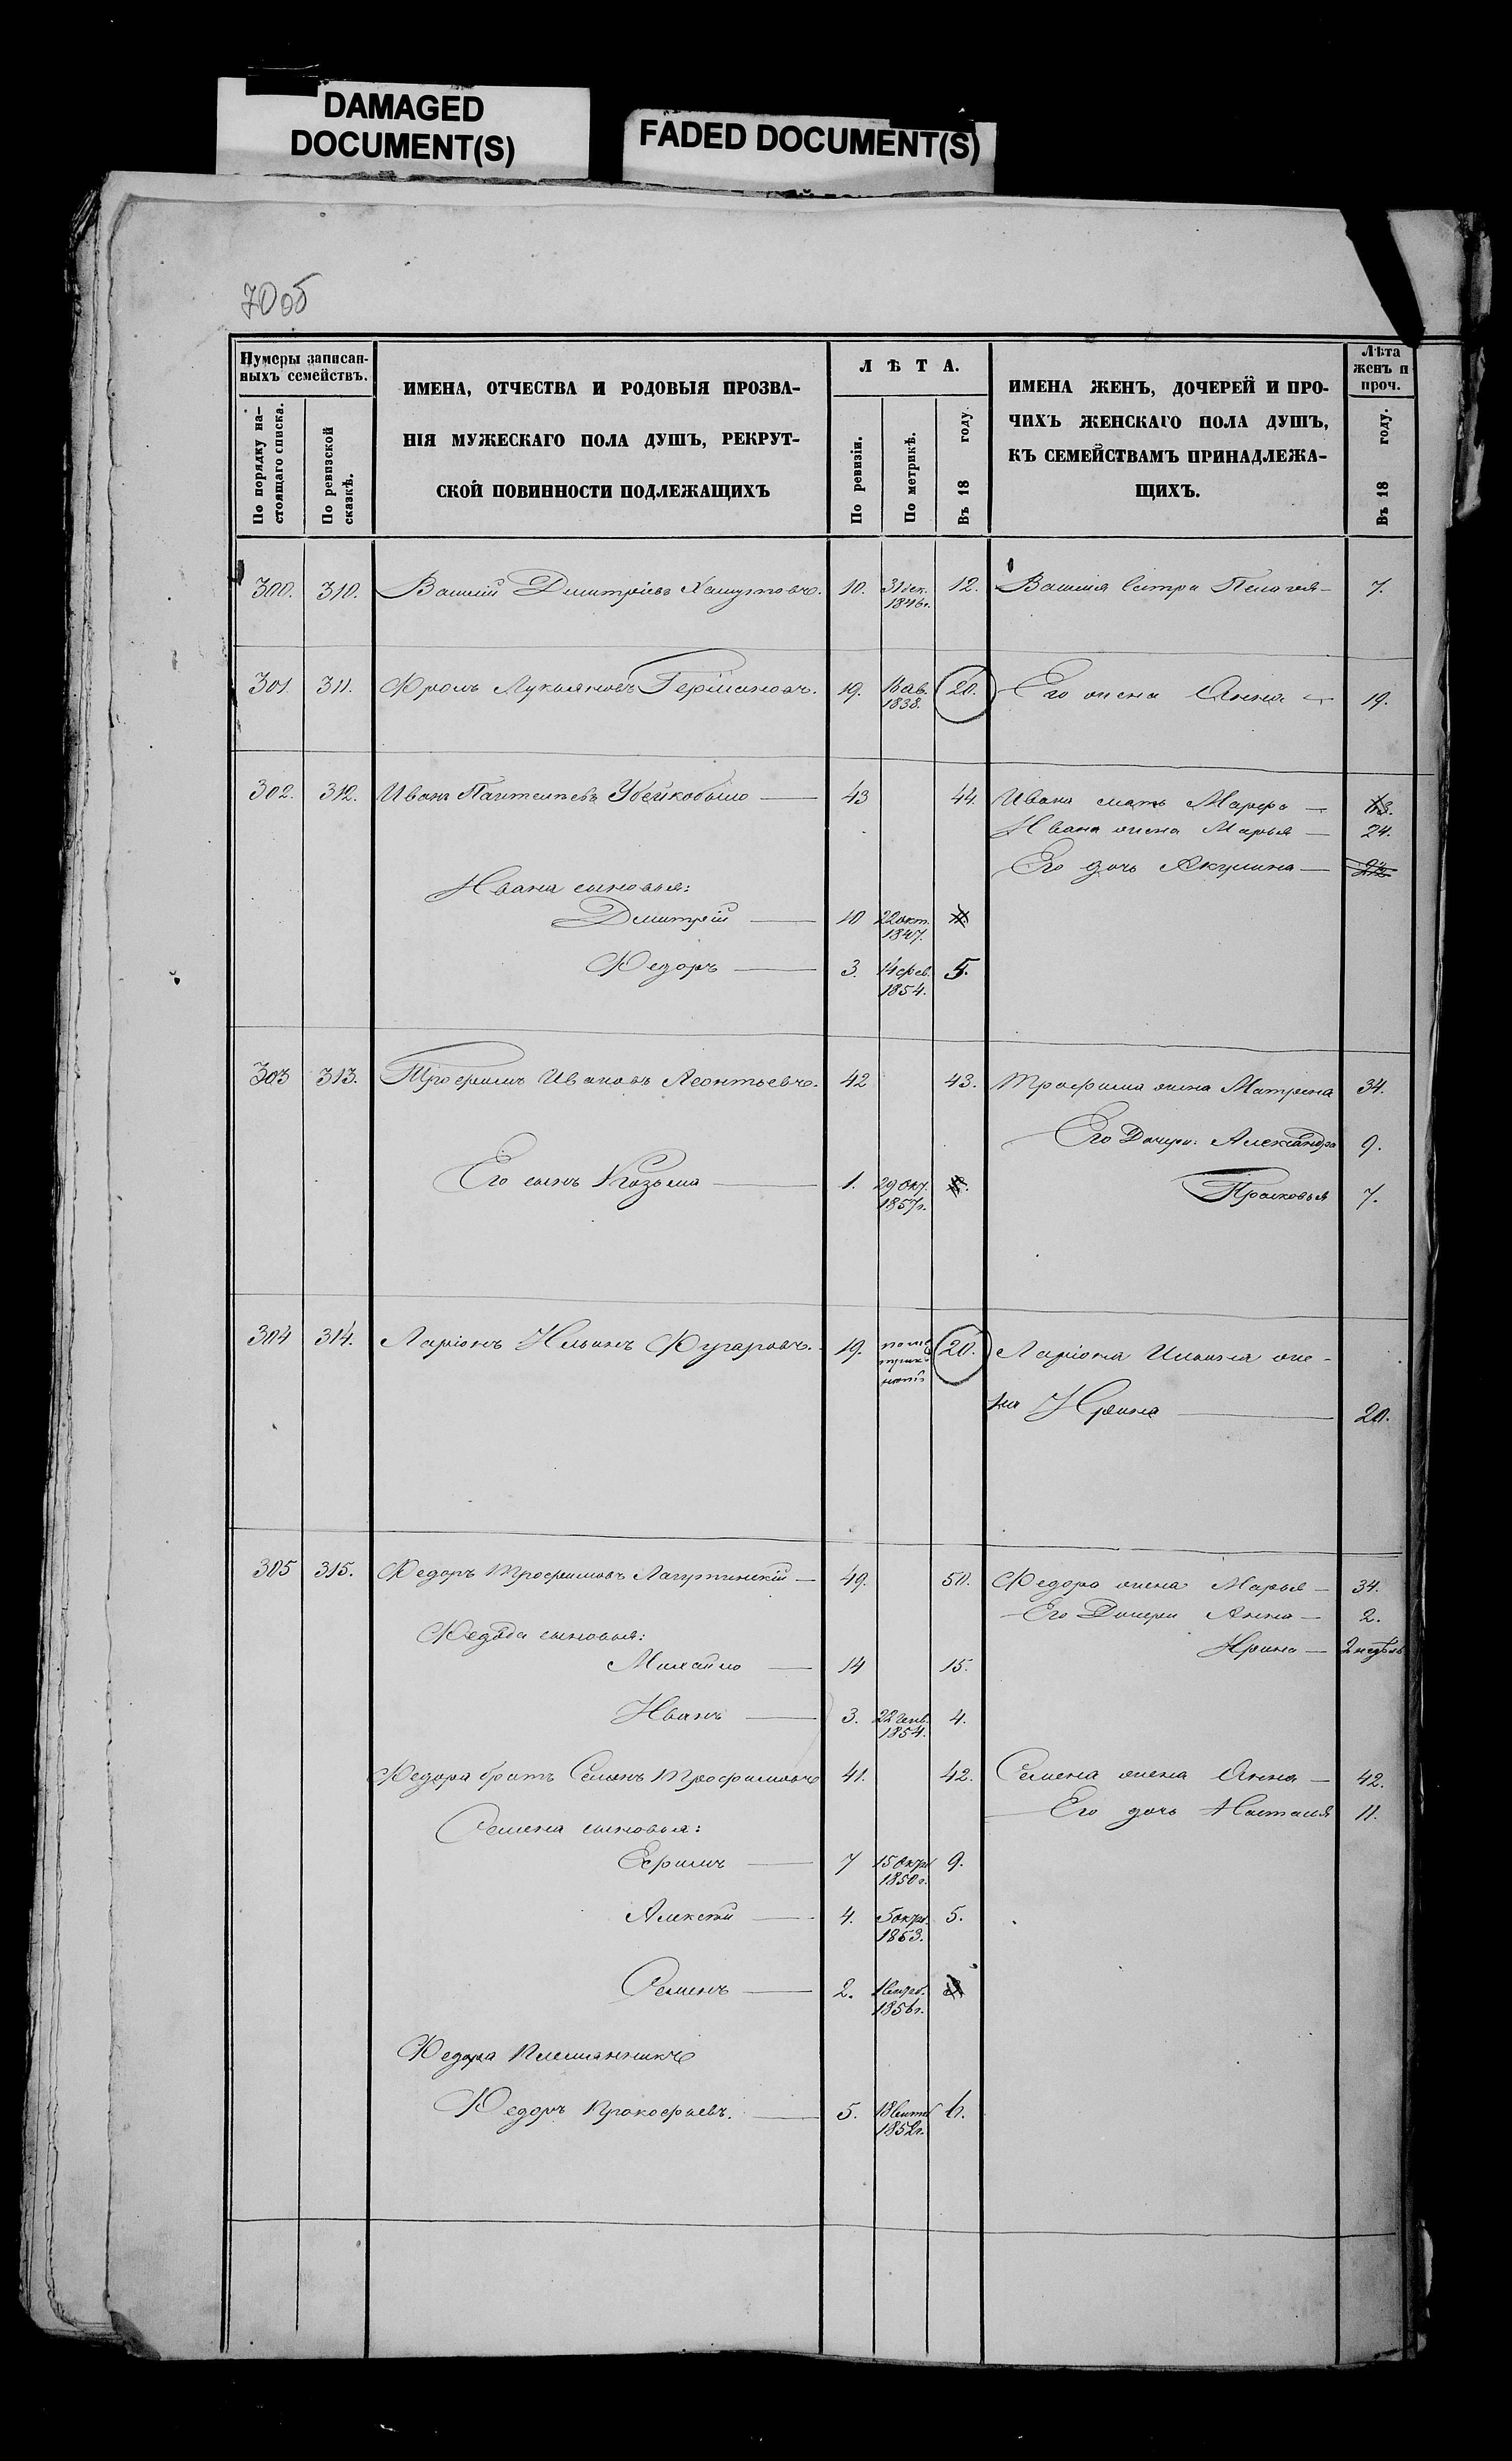 DAMAGED
DOCUMENT(S)
FADED DOCUMENT(S)
70об
Нумеры записан-
ныхъ семействъ.
По порядку на-
стоящаго списка.
По ревизской
сказкѣ.
ИМЕНА, ОТЧЕСТВА И РОДОВЫЯ ПРОЗВА-
НІЯ МУЖЕСКАГО ПОЛА ДУШЪ, РЕКРУТ-
СКОЙ ПОВИННОСТИ ПОДЛЕЖАЩИХЪ
Л Ѣ Т А.
По ревизіи.
По метрикѣ.
Въ 18 году.
ИМЕНА ЖЕНЪ, ДОЧЕРЕЙ И ПРО-
ЧИХЪ ЖЕНСКАГО ПОЛА ДУШЪ,
КЪ СЕМЕЙСТВАМЪ ПРИНАДЛЕЖА-
ЩИХЪ.
Лѣта
женъ и
проч.
Въ 18 году.
300. 310. Василій Дмитріевъ Хамутовъ. 10. 31 дек. 12. Василія сестра Пелагея — 7.
1846г.
301. 311. Фролъ Лукьяновъ Германовъ. 19. 18 ав. 20. Его жена Анна — 19.
1838.
302. 312. Иванъ Пантелѣевъ Убейкобыло — 43 44. Ивана мать Марфа — 63.
Ивана жена Марья — 24.
Его дочь Акулина —
Ивана сыновья:
Дмитрій — 10 22 окт. 11.
1847.
Федоръ — 3. 14 фев. 5.
1854.
303 313. Трофимъ Ивановъ Леонтьевъ. 42 43. Трофима жена Матрена 34.
Его дочери: Александра 9.
Его сынъ Козьма — 1. 29 ок.
1857г.
Прасковья 7.
304 314. Ларіонъ Ильинъ Фугаровъ. 19. по ме 20. Ларіона Ильина же-
трик
на Ирина — 20.
305 315. Федоръ Трофимовъ Лагутинскій — 49. 50. Федора жена Марья — 34.
Его дочери Анна — 2.
Федора сыновья:
Ирина — 2 недѣль
Михайло — 14 15.
Иванъ — 3. 22 генв. 4.
1854.
Федора братъ Семенъ Трофимовъ 41. 42. Семена жена Анна — 42.
Его дочь Наталья 11.
Семена сыновья:
Ефимъ — 7 15 октя 9.
1850г.
Алексѣй — 4. 5 октя. 5.
1853.
Семенъ — 2.
1856г.
Федора племянникъ
Федоръ Прокофьевъ. — 5. 18 сентя 6.
1852г.